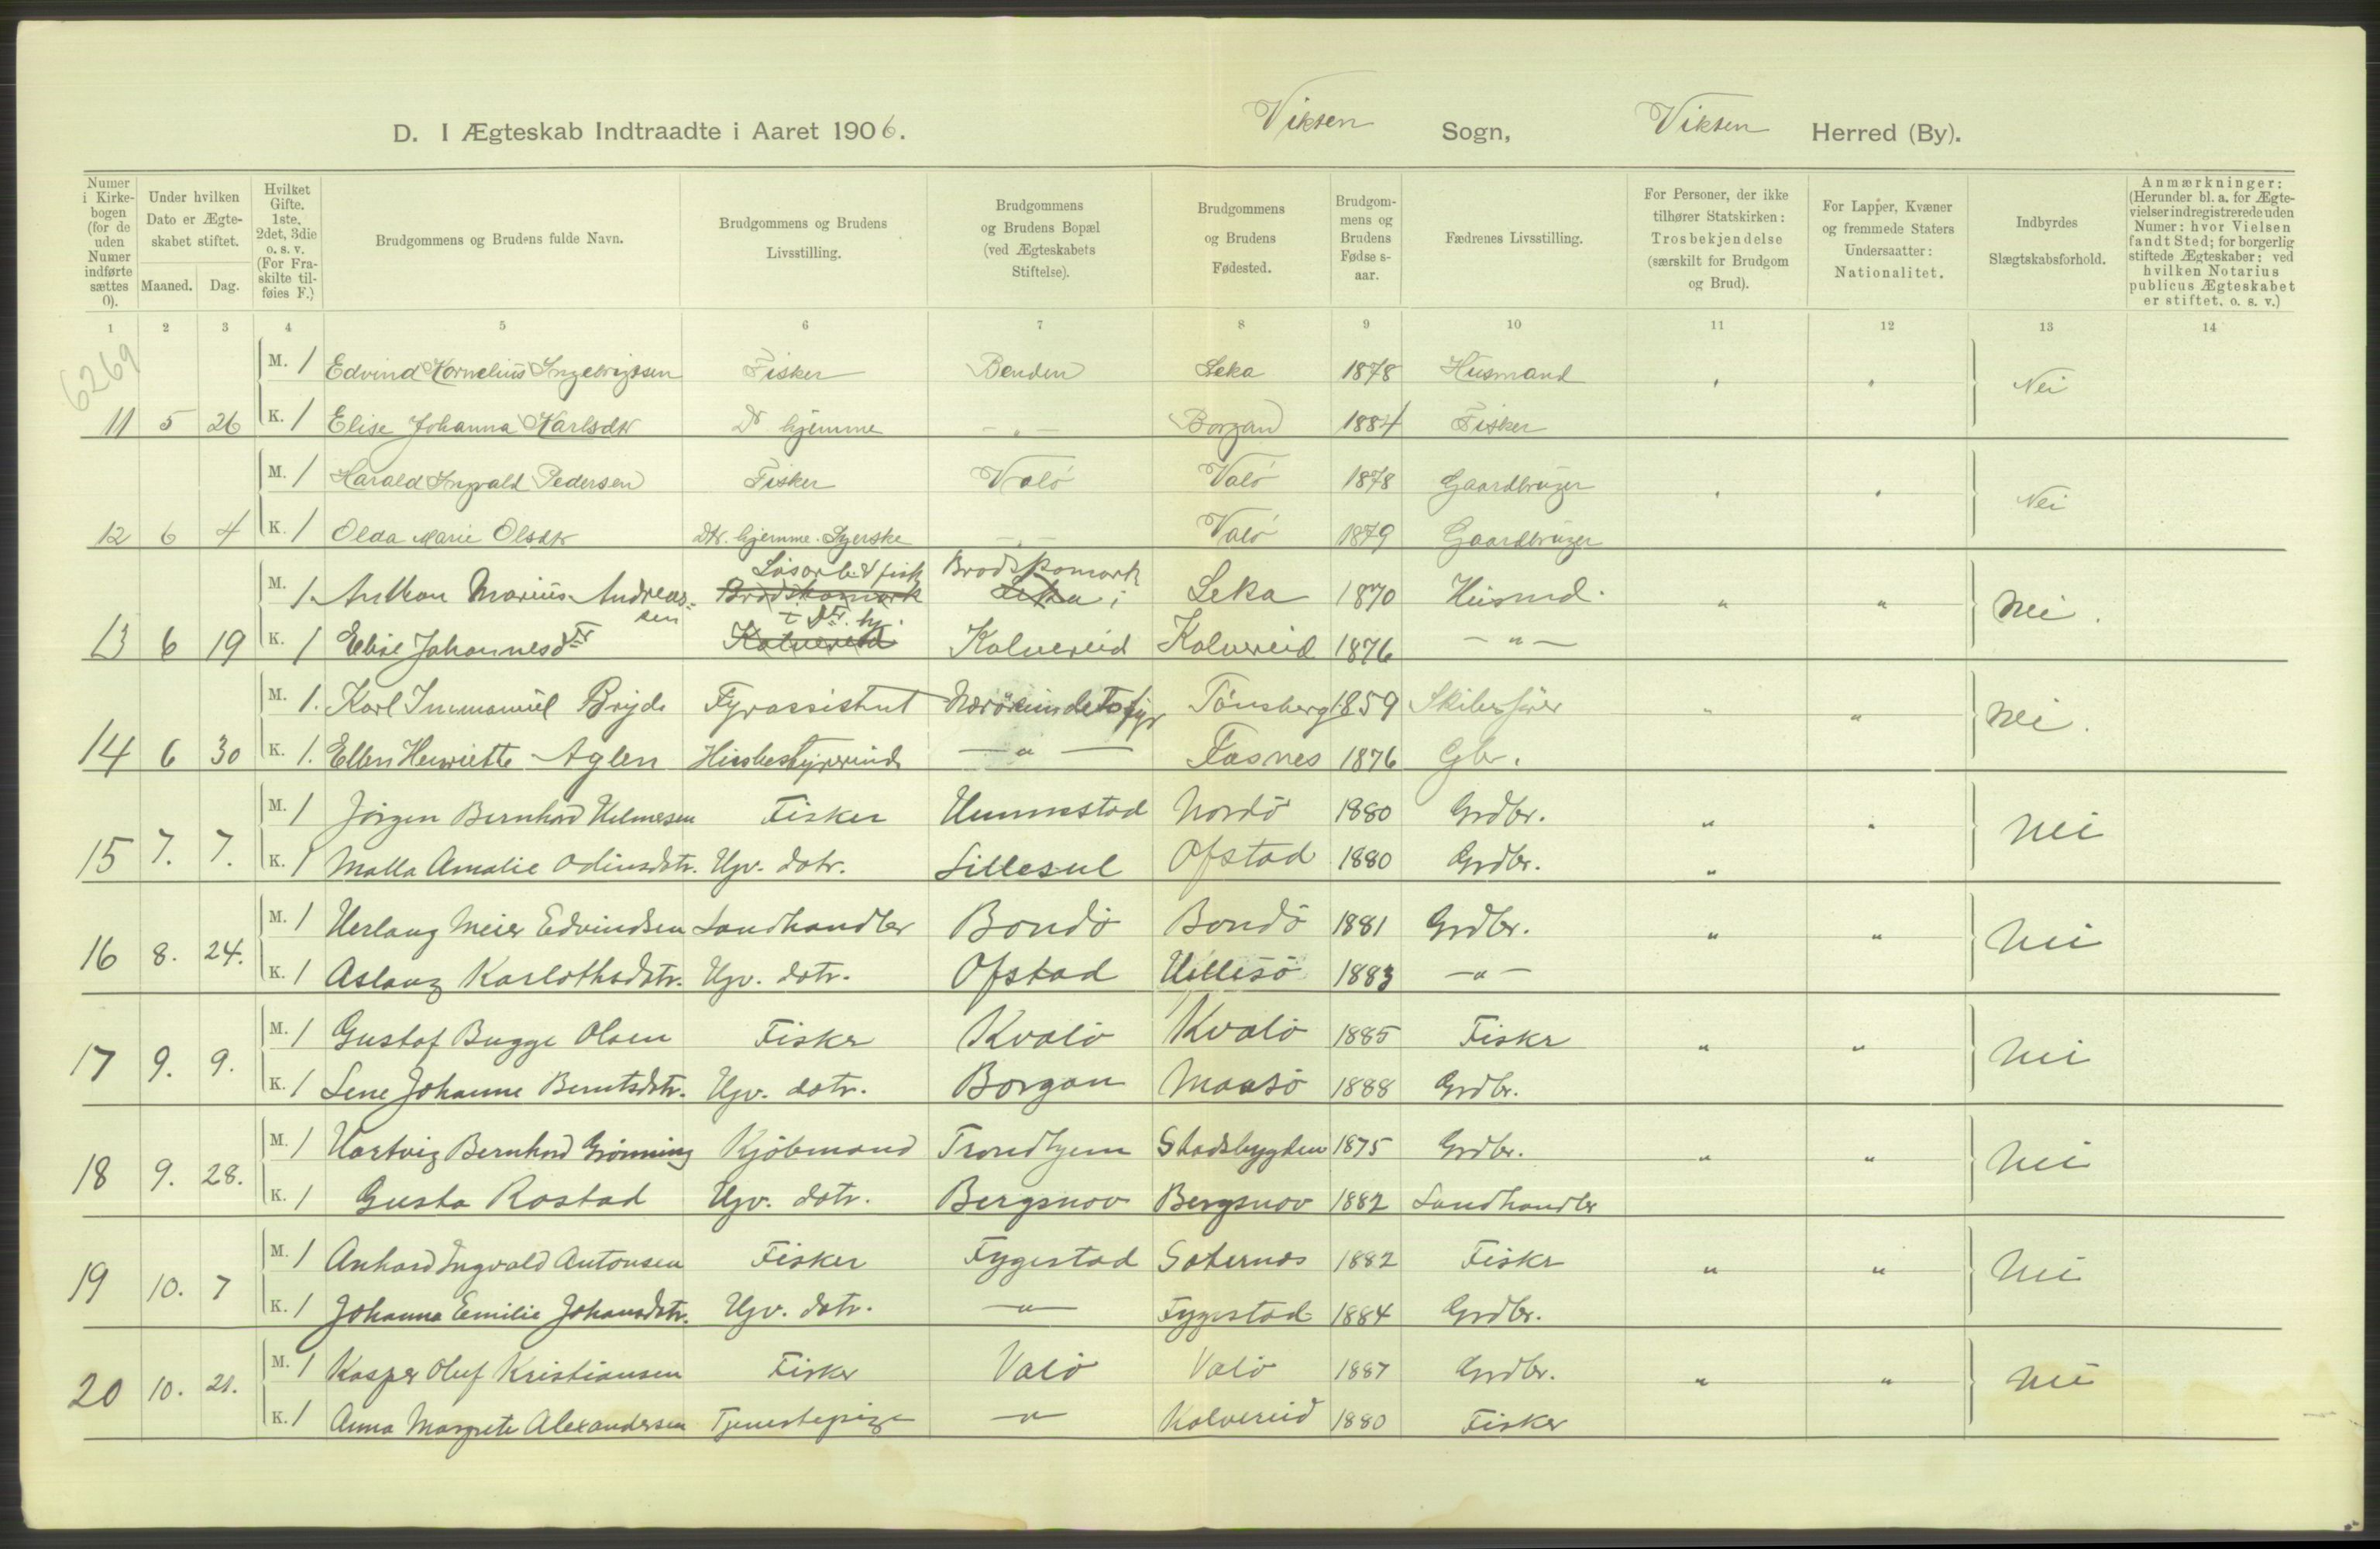 D. I Ægteskab Indtraadte i Aaret 1906. Vikten Sogn, Vikten Herred (By).
Numer i Kirkebogen (for de uden Numer indførte sættes 0). | Under hvilken Dato er Ægteskabet stiftet. Maaned. Dag. | Hvilket Gifte. 1ste, 2det, 3die o. s. v. (For Fraskilte tilføies F.) | Brudgommens og Brudens fulde Navn. | Brudgommens og Brudens Livsstilling. | Brudgommens og Brudens Bopæl (ved Ægteskabets Stiftelse). | Brudgommens og Brudens Fødested. | Brudgommens og Brudens Fødselsaar. | Fædrenes Livsstilling. | For Personer, der ikke tilhører Statskirken: Trosbekjendelse (særskilt for Brudgom og Brud). | For Lapper, Kvæner og fremmede Staters Undersaatter: Nationalitet. | Indbyrdes Slægtskabsforhold. | Anmærkninger: (Herunder bl. a. for Ægtevielser indregistrerede uden Numer: hvor Vielsen fandt Sted; for borgerlig stiftede Ægteskaber: ved hvilken Notarius publicus Ægteskabet er stiftet. o. s. v.)
1 2 3 4 5 6 7 8 9 10 11 12 13 14
6269
M. 1 Edvind Kornelius Ingebrigtsen Fisker Benden Leka 1878 Husmand " " Nei
11 5 26 K. 1 Elise Johanna Karlsdtr Dr hjemme - " - Borgan 1884 Fisker
M. 1 Harald Ingvald Pedersen Fisker Valö Valö 1878 Gaardbruger " " Nei
12 6 4 K. 1 Olda Marie Olsdtr Dtr. hjemme. Syerske - " - Valö 1879 Gaardbruger
Lösarb. & fisk Brodskomark
M. 1. Anthon Marius Andreassen Brodskomark Leka i Leka 1870 Husmd. " " Nei.
13 6 19 K. 1 Elise Johannesdtr Kalvereid Kalvereid Kalvereid 1876 - " -
M. 1. Karl Immanuel Bryde Fyrassistent Nærösundets fyr Tönsberg 1859 Skibsförer " " Nei.
14 6 30 K. 1. Ellen Henriette Aglen Husbestyrerinde - " - Fosnes 1876 Gbr.
M. 1 Jörgen Bernhard Helmersen Fisker Hunnestad Nordö 1880 Grdbr. " " Nei
15 7. 7. K. 1 Malla Amalie Odinsdtr. Hjv. datr. Lillesul Ofstad 1880 Grdbr. "
M. 1 Herlaug Meier Edvindsen Landhandler Bondö Bondö 1881 Grdbr. " " Nei
16 8. 24. K. 1 Aslaug Karlothsdatr. Hjv. datr. Ofstad Hillesö 1883 - " -
M. 1 Gustaf Bugge Olsen Fisker Kvalö Kvalö 1885 Fisker " " Nei
17 9. 9. K. 1 Lene Johanne Berntsdtr. Hjv. datr. Borgan Maasö 1888 Grdbr.
M. 1 Hartvig Bernhard Grönning Kjöbmand Trondhjem Stadsbygden 1875 Grdbr. " " Nei
18 9. 28. K. 1 Gusta Rostad Hjv. datr. Bergsnov Bergsnov 1882 Landhandler
M. 1 Anhard Ingvald Antonsen Fisker Fygestad Saternes 1882 Fisker " " Nei
19 10. 7 K. 1 Johanna Emilie Johansdtr. Hjv. datr. - " - Fygestad 1884 Grdbr.
M. 1 Kasper Oluf Kristiansen Fisker Valö Valö 1887 Grdbr. " " Nei
20 10. 21. K. 1 Anna Margrete Alexandersen Tjenestepige - " - Kalvereid 1880 Fisker